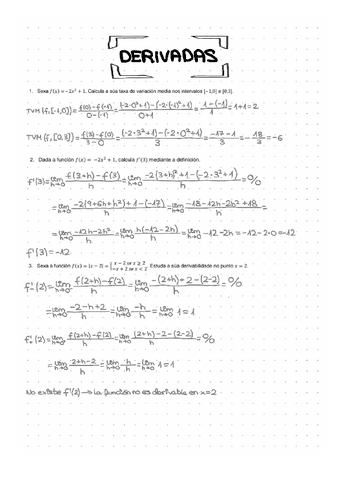 DERIVADAS
1. Sexa f(x) = −2x² + 1. Calcula a súa taxa de variación media nos intervalos [-1,0] e [0,3].
TVM {f,[-1,0]} = f(0)-f(-1) / 0-(-1) = (-2·0²+1)-(-2·(-1)²+1) / 0+1 = 1-(-1) / 1 = 1+1 = 2
TVM {f,[0,3]} = f(3)-f(0) / 3-0 = (-2·3²+1)-(-2·0²+1) / 3 = -17-1 / 3 = -18 / 3 = -6
2. Dada a función f(x) = −2x² + 1, calcula f'(3) mediante a definición.
f'(3) = lim h→0 f(3+h)-f(3) / h = lim h→0 -2(3+h)²+1-(-2·3²+1) / h = 0/0
= lim h→0 -2(9+6h+h²)+1-(-17) / h = lim h→0 -18-12h-2h²+18 / h =
= lim h→0 -12h-2h² / h = lim h→0 h(-12-2h) / h = lim h→0 -12-2h = -12-2·0 = -12
f'(3) = -12
3. Sexa a función f(x) = |x − 2| = { x − 2 se x ≥ 2 −x + 2 se x < 2 . Estuda a súa derivabilidade no punto x = 2.
f'₋(2) = lim h→0 f(2+h)-f(2) / h = lim h→0 -(2+h)+2-(2-2) / h = 0/0
= lim h→0 -2-h+2 / h = lim h→0 -h / h = lim h→0 1 = 1
f'₊(2) = lim h→0 f(2+h)-f(2) / h = lim h→0 (2+h)-2-(2-2) / h = 0/0
= lim h→0 2+h-2 / h = lim h→0 h / h = lim h→0 1 = 1
No existe f'(2) → la función no es derivable en x=2